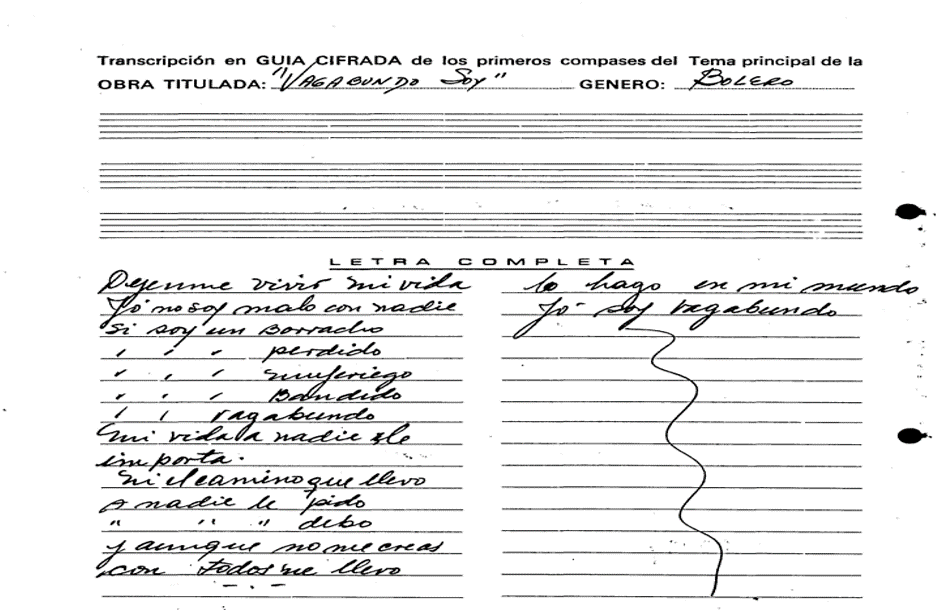 Transcripción en GUIA CIFRADA de los primeros compases del Tema principal de la
OBRA TITULADA: "VAGABUNDO SOY" GENERO: BOLERO
LETRA COMPLETA
Dejenme vivir mi vida
Yó no soy malo con nadie
Si soy un Borracho
, , , perdido
, , , mujeriego
, , , Bandido
, , vagabundo
mi vida a nadie le
importa.
ni el camino que llevo
A nadie le pido
" " " debo
y aunque no me creas
con todos me llevo
lo hago en mi mundo
Yó soy vagabundo